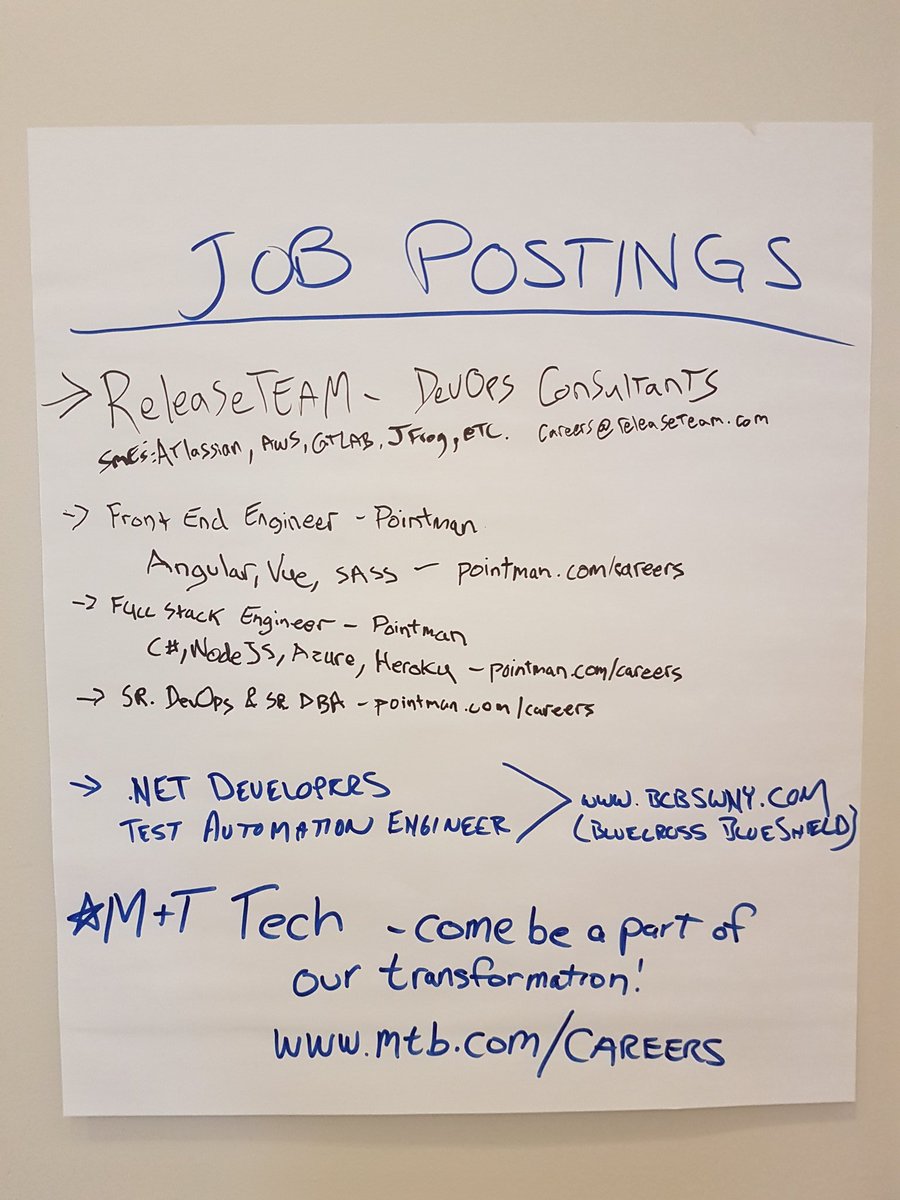 JOB POSTINGS
→ ReleaseTEAM - DevOps Consultants
SMEs: Atlassian, AWS, GITLAB, JFrog, ETC. careers@releaseteam.com
→ Front End Engineer - Pointman
Angular, Vue, SASS - pointman.com/careers
→ Full Stack Engineer - Pointman
C#, NodeJS, Azure, Heroku - pointman.com/careers
→ SR. DevOps & SR DBA - pointman.com/careers
→ .NET DEVELOPERS
TEST AUTOMATION ENGINEER
WWW.BCBSWNY.COM
(BLUECROSS BLUESHIELD)
☆M+T Tech - come be a part of
our transformation!
www.mtb.com/CAREERS